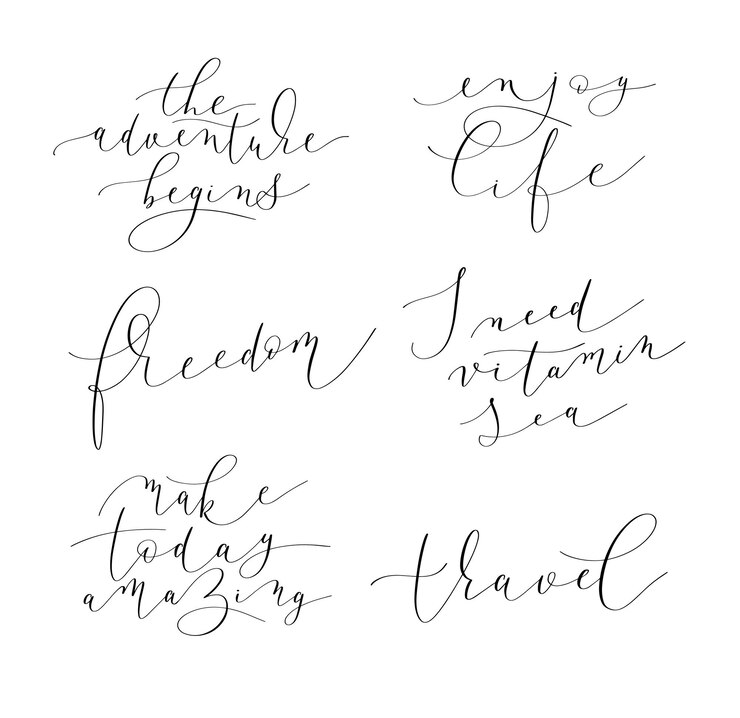 the
adventure
begins
enjoy
life
freedom
I need
vitamin
sea
make
today
amazing
travel